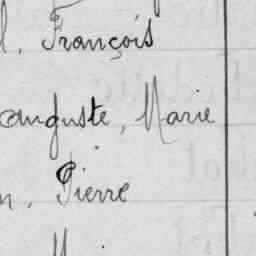 l, François
Auguste, Marie
n, Pierre